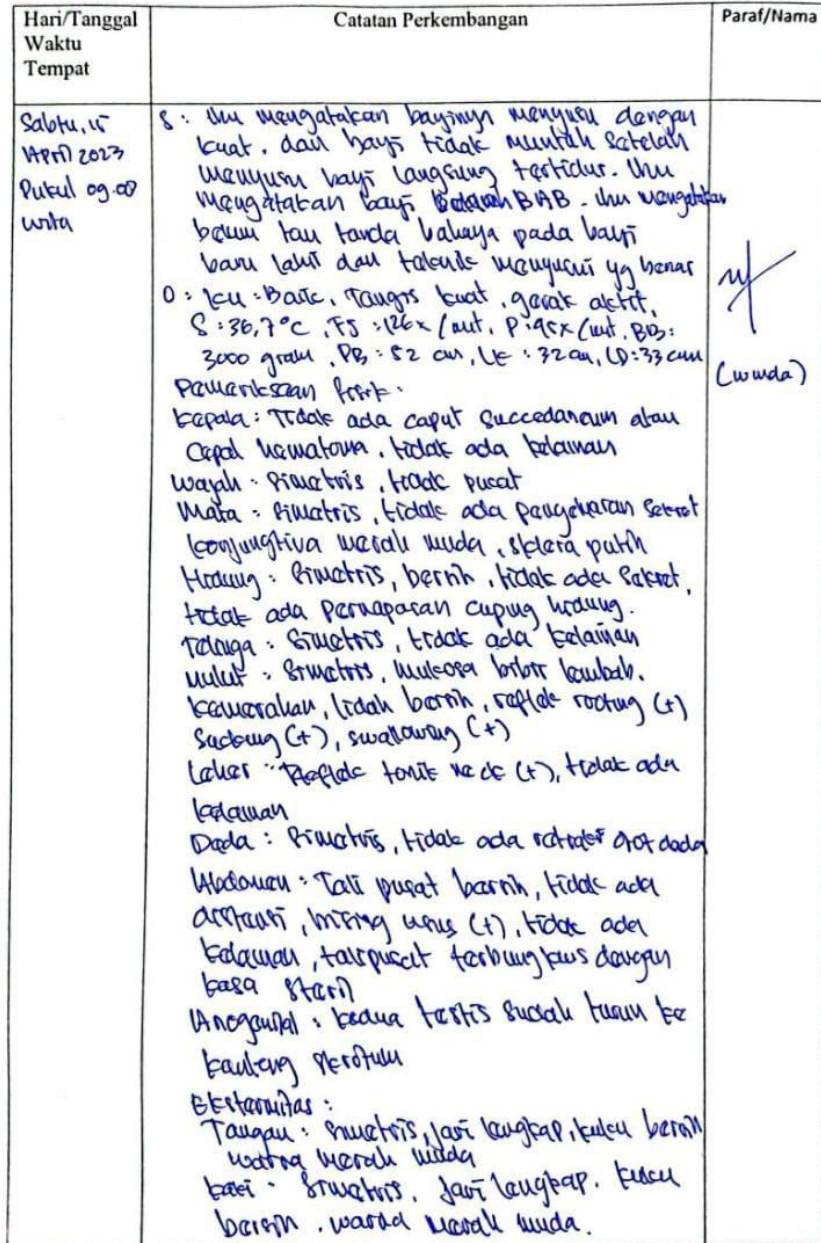 Hari/Tanggal
Waktu
Tempat
Catatan Perkembangan
Paraf/Nama
Sabtu, 15
April 2023
Pukul 09.00
wita
S : Ibu mengatakan bayinya menyusu dengan
kuat, dan bayi tidak muntah setelah
menyusu bayi langsung tertidur. Ibu
mengatakan bayi BAB. Ibu mengatakan
belum tau tanda bahaya pada bayi
baru lahir dan teknik menyusui yg benar
O : KU : Baik, Tangis kuat, gerak aktif,
S : 36,7°C, FJ : 126x/mnt, P : 45x/mnt, BB :
3000 gram, PB : 52 cm, LK : 32 cm, LD : 33 cm
Pemeriksaan fisik :
Kepala : Tidak ada caput succedaneum atau
Cepal hematoma, tidak ada kelainan
Wajah : Simetris, tidak pucat
Mata : Simetris, tidak ada pengeluaran sekret
konjungtiva merah muda, sklera putih
Hidung : Simetris, bersih, tidak ada sekret,
tidak ada pernapasan cuping hidung.
Telinga : Simetris, tidak ada kelainan
Mulut : Simetris, mukosa bibir lembab.
kemerahan, lidah bersih, reflek rooting (+)
Sucking (+), swallowing (+)
Leher : Reflek tonik neck (+), tidak ada
kelainan
Dada : Simetris, tidak ada otot dada
Abdomen : Tali pusat bersih, tidak ada
distensi, bising usus (+), tidak ada
kelainan, tali pusat terbungkus dengan
kasa steril
Anogenital : kedua testis sudah turun ke
kantong skrotum
Ekstermitas :
Tangan : simetris, jari lengkap, kuku bersih
warna merah muda
kaki : Simetris, jari lengkap, kuku
bersih, warna merah muda.
(winda)